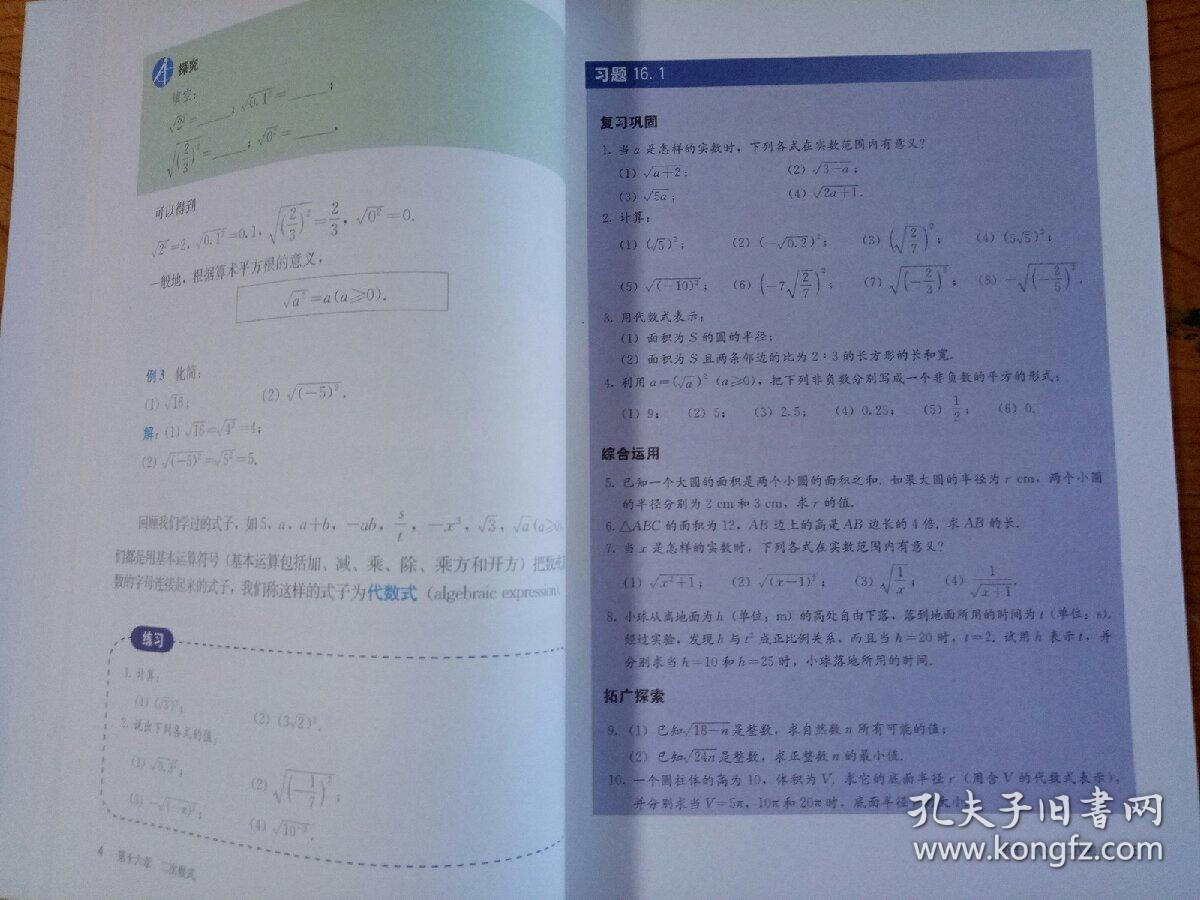 探究
填空：
√2²=____；√0.1²=____；
√(2/3)²=____；√0²=____．
可以得到
√2²=2，√0.1²=0.1，√(2/3)²=2/3，√0²=0．
一般地，根据算术平方根的意义，
√a²=a(a≥0)．
例3 化简：
(1) √16； (2) √(−5)²．
解：(1) √16=√4²=4；
(2) √(−5)²=√5²=5．
回顾我们学过的式子，如5，a，a+b，−ab，s/t，−x³，√3，√a(a≥0)
们都是用基本运算符号（基本运算包括加、减、乘、除、乘方和开方）把数或
数的字母连接起来的式子，我们称这样的式子为代数式（algebraic expression）
练习
1. 计算：
(1) (√3)²； (2) (3√2)²．
2. 说出下列各式的值：
(1) √0.3²； (2) √(−1/7)²；
(3) −√(−π)²； (4) √10⁻²．
4 第十六章 二次根式
习题 16.1
复习巩固
1. 当a是怎样的实数时，下列各式在实数范围内有意义？
(1) √a+2； (2) √3−a；
(3) √5a； (4) √2a+1．
2. 计算：
(1) (√5)²； (2) (−√0.2)²； (3) (√2/7)²； (4) (5√5)²；
(5) √(−10)²； (6) (−7√2/7)²； (7) √(−2/3)²； (8) −√(−2/5)²．
3. 用代数式表示：
(1) 面积为S的圆的半径；
(2) 面积为S且两条邻边的比为2∶3的长方形的长和宽．
4. 利用a=(√a)²（a≥0），把下列非负数分别写成一个非负数的平方的形式：
(1) 9； (2) 5； (3) 2.5； (4) 0.25； (5) 1/2； (6) 0．
综合运用
5. 已知一个大圆的面积是两个小圆的面积之和．如果大圆的半径为r cm，两个小圆
的半径分别为2 cm和3 cm，求r的值．
6. △ABC的面积为12，AB边上的高是AB边长的4倍．求AB的长．
7. 当x是怎样的实数时，下列各式在实数范围内有意义？
(1) √x²+1； (2) √(x−1)²； (3) √1/x； (4) 1/√x+1．
8. 小球从离地面为h（单位：m）的高处自由下落，落到地面所用的时间为t（单位：s）．
经过实验，发现h与t²成正比例关系，而且当h=20时，t=2．试用h表示t，并
分别求当h=10和h=25时，小球落地所用的时间．
拓广探索
9. (1) 已知√18−n是整数，求自然数n所有可能的值；
(2) 已知√24n是整数，求正整数n的最小值．
10. 一个圆柱体的高为10，体积为V．求它的底面半径r（用含V的代数式表示），
并分别求当V=5π，10π和20π时，底面半径 大小
孔夫子旧书网
www.kongfz.com